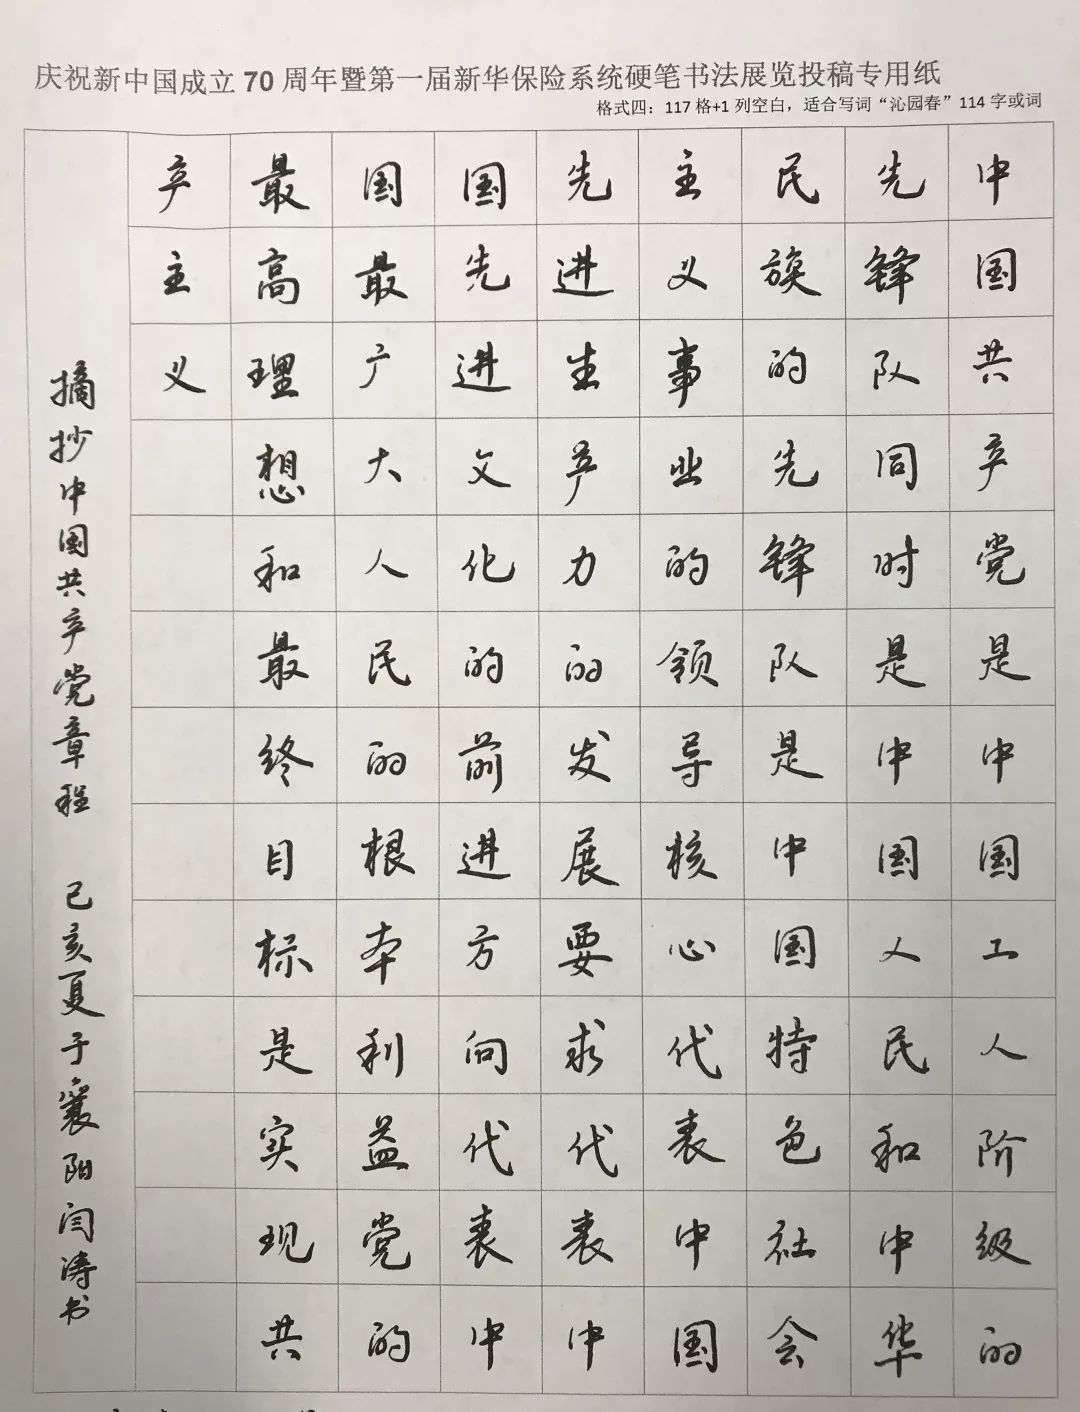 庆祝新中国成立 70 周年暨第一届新华保险系统硬笔书法展览投稿专用纸
格式四：117 格+1 列空白，适合写词“沁园春”114 字或词
中国共产党是中国工人阶级的
先锋队同时是中国人民和中华
民族的先锋队是中国特色社会
主义事业的领导核心代表中国
先进生产力的发展要求代表中
国先进文化的前进方向代表中
国最广大人民的根本利益党的
最高理想和最终目标是实现共
产主义
摘抄中国共产党章程 己亥夏于襄阳闫涛书